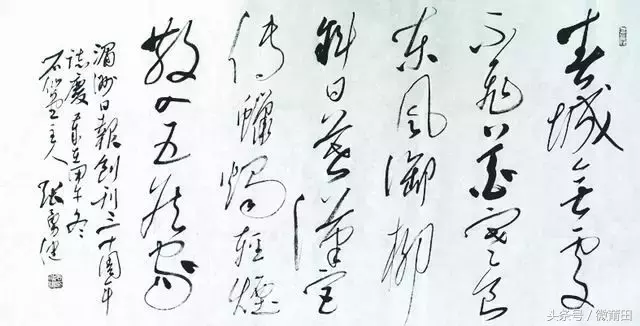 春城無處
不飛花寒食
東風御柳
斜日暮漢宮
傳蠟燭輕煙
散入五侯家
湄洲日報創刊三十周年
誌慶 歲在甲午冬
主人 張
头条号 / 微莆田